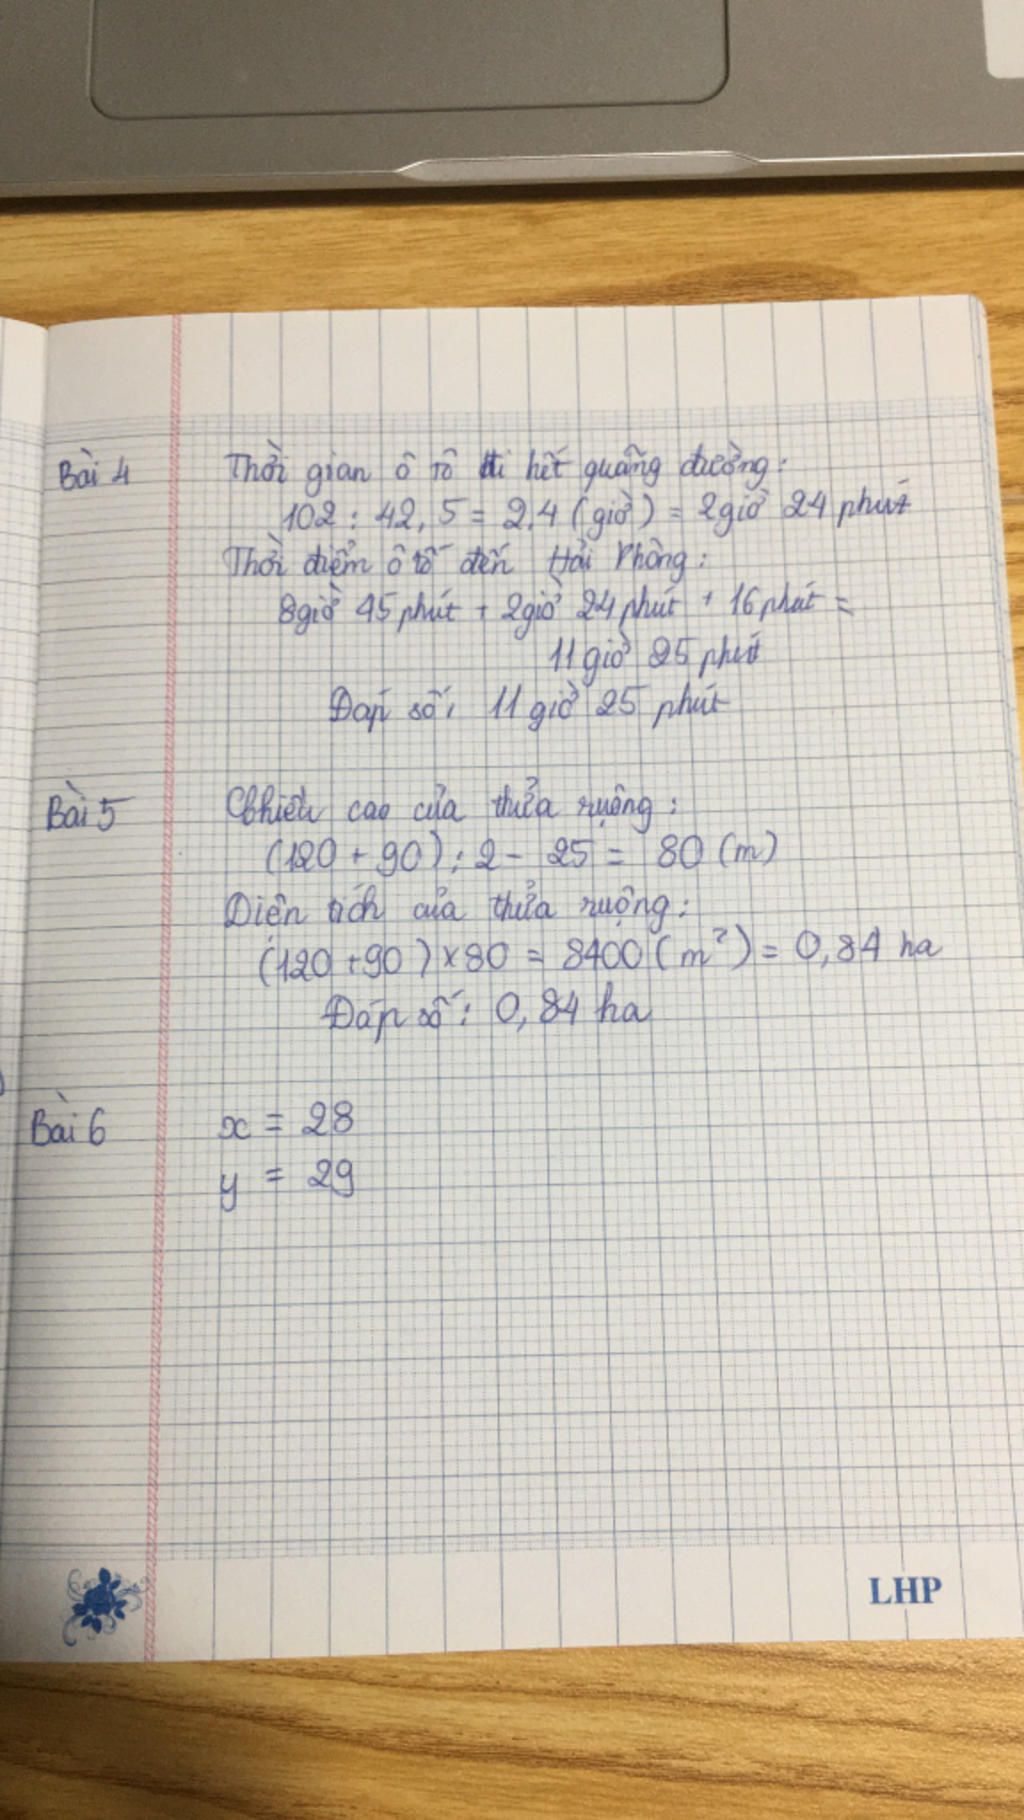 Bài 4 Thời gian ô tô đi hết quãng đường:
102 : 42,5 = 2,4 (giờ) = 2giờ 24 phút
Thời điểm ô tô đến Hải Phòng:
8giờ 45 phút + 2giờ 24 phút + 16 phút =
11 giờ 25 phút
Đáp số: 11 giờ 25 phút
Bài 5 Chiều cao của thửa ruộng:
(120 + 90) : 2 - 25 = 80 (m)
Diện tích của thửa ruộng:
(120 + 90) x 80 = 8400 (m²) = 0,84 ha
Đáp số: 0,84 ha
Bài 6 x = 28
y = 29
LHP